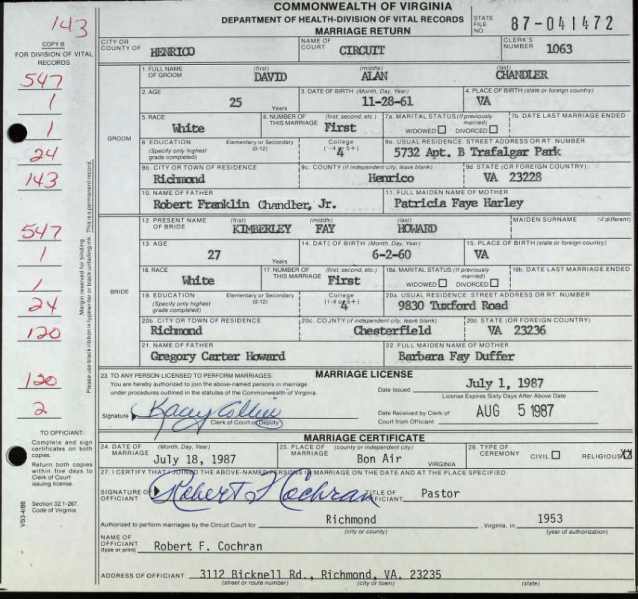 COMMONWEALTH OF VIRGINIA
DEPARTMENT OF HEALTH-DIVISION OF VITAL RECORDS
MARRIAGE RETURN
STATE FILE NO. 87-041472
143
COPY B
FOR DIVISION OF VITAL RECORDS
CITY OR COUNTY OF HENRICO NAME OF COURT CIRCUIT CLERK'S NUMBER 1063
547
1
1
24
143
547
1
1
24
120
120
2
GROOM
1. FULL NAME OF GROOM (first) DAVID (middle) ALAN (last) CHANDLER
2. AGE 25 Years 3. DATE OF BIRTH (Month, Day, Year) 11-28-61 4. PLACE OF BIRTH (state or foreign country) VA
5. RACE White 6. NUMBER OF THIS MARRIAGE (first, second, etc.) First 7a. MARITAL STATUS (if previously married) WIDOWED DIVORCED 7b. DATE LAST MARRIAGE ENDED
8. EDUCATION (Specify only highest grade completed) Elementary or Secondary (0-12) College (1-4 or 5+) 4 9a. USUAL RESIDENCE: STREET ADDRESS OR RT. NUMBER 5732 Apt. B Trafalgar Park
9b. CITY OR TOWN OF RESIDENCE Richmond 9c. COUNTY (if independent city, leave blank) Henrico 9d. STATE (OR FOREIGN COUNTRY) VA 23228
10. NAME OF FATHER Robert Franklin Chandler, Jr. 11. FULL MAIDEN NAME OF MOTHER Patricia Faye Harley
BRIDE
12. PRESENT NAME OF BRIDE (first) KIMBERLEY (middle) FAY (last) HOWARD MAIDEN SURNAME (if different)
13. AGE 27 Years 14. DATE OF BIRTH (Month, Day, Year) 6-2-60 15. PLACE OF BIRTH (state or foreign country) VA
16. RACE White 17. NUMBER OF THIS MARRIAGE (first, second, etc.) First 18a. MARITAL STATUS (if previously married) WIDOWED DIVORCED 18b. DATE LAST MARRIAGE ENDED
19. EDUCATION (Specify only highest grade completed) Elementary or Secondary (0-12) College (1-4 or 5+) 4 20a. USUAL RESIDENCE: STREET ADDRESS OR RT. NUMBER 9830 Tuxford Road
20b. CITY OR TOWN OF RESIDENCE Richmond 20c. COUNTY (if independent city, leave blank) Chesterfield 20d. STATE (OR FOREIGN COUNTRY) VA 23236
21. NAME OF FATHER Gregory Carter Howard 22. FULL MAIDEN NAME OF MOTHER Barbara Fay Duffer
Margin reserved for binding
Please use black ribbon in typewriter or black unfading ink. This is a permanent record.
MARRIAGE LICENSE
23. TO ANY PERSON LICENSED TO PERFORM MARRIAGES:
You are hereby authorized to join the above-named persons in marriage
under procedures outlined in the statutes of the Commonwealth of Virginia.
Date Issued July 1, 1987
License Expires Sixty Days After Above Date
Signature Kacey Collin
Clerk of Court (or Deputy)
Date Received by Clerk of Court from Officiant AUG 5 1987
TO OFFICIANT:
Complete and sign
certificates on both
copies.
Return both copies
within five days to
Clerk of Court
issuing license
Section 32.1-267.
Code of Virginia
VS3-4/86
MARRIAGE CERTIFICATE
24. DATE OF MARRIAGE (Month, Day, Year) July 18, 1987 25. PLACE OF MARRIAGE (county or independent city) Bon Air VIRGINIA 26. TYPE OF CEREMONY CIVIL RELIGIOUS XX
27. I CERTIFY THAT I JOINED THE ABOVE-NAMED PERSONS IN MARRIAGE ON THE DATE AND AT THE PLACE SPECIFIED.
SIGNATURE OF OFFICIANT Robert F Cochran TITLE OF OFFICIANT Pastor
Authorized to perform marriages by the Circuit Court for Richmond, Virginia, in 1953
(city or county) (year of authorization)
NAME OF OFFICIANT (type or print) Robert F. Cochran
ADDRESS OF OFFICIANT 3112 Bicknell Rd., Richmond, VA. 23235
(street or route number) (city or town) (state)